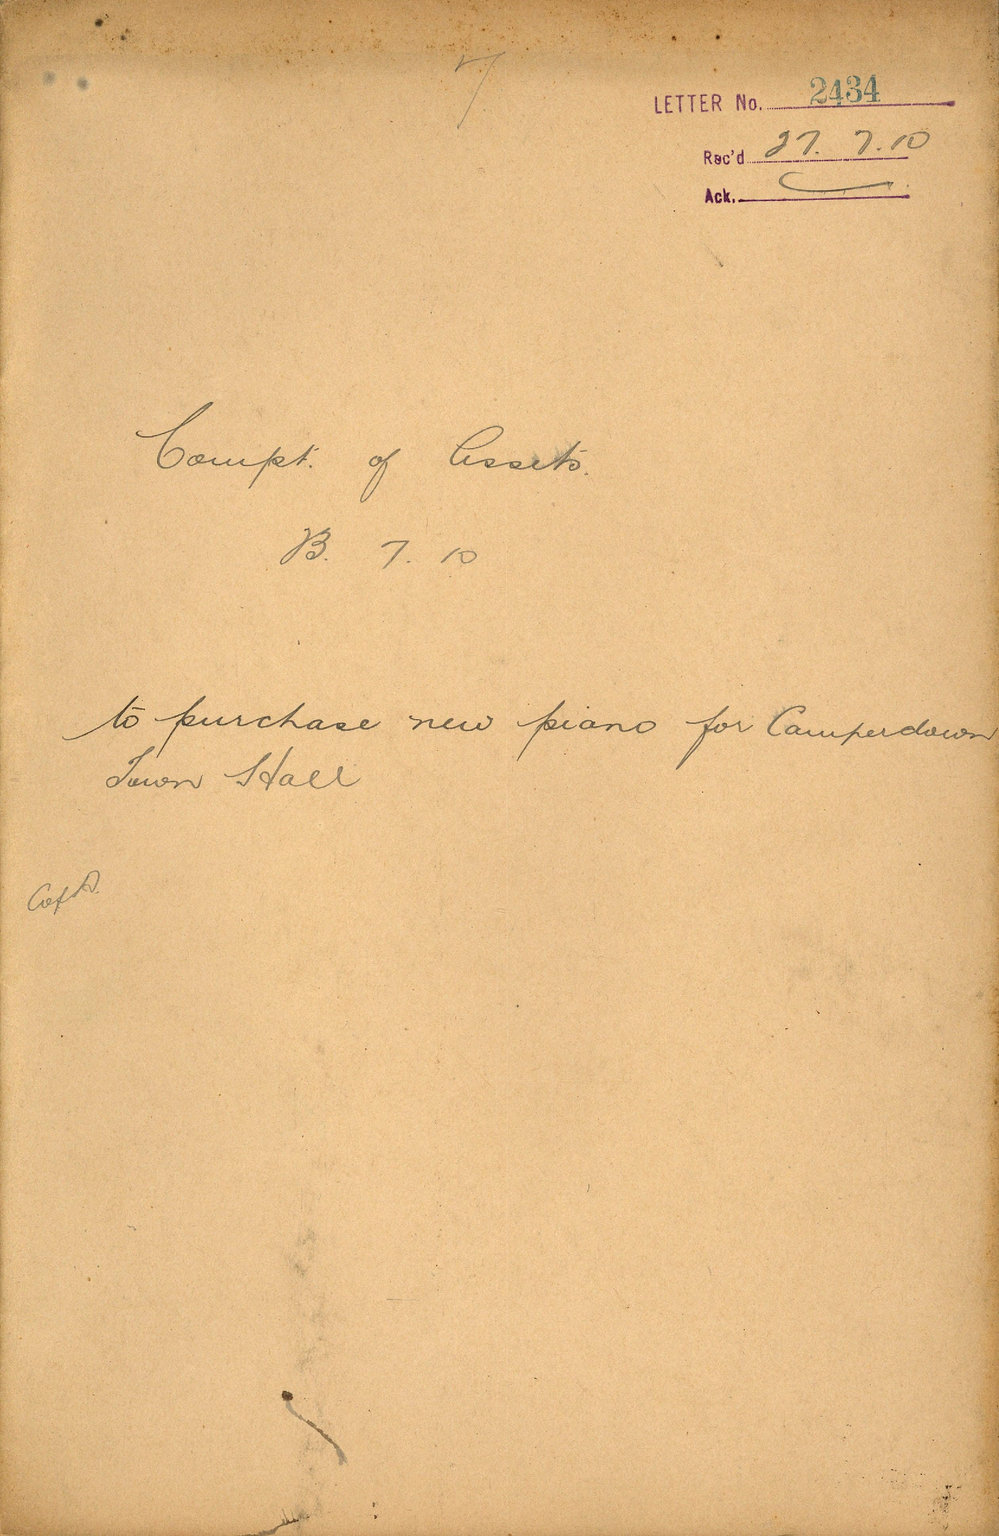 7
LETTER No. 2434
Rec'd 27. 7. 10
Ack.
Compt. of Assets.
B. 7. 10
to purchase new piano for Camperdown
Town Hall
C of A.